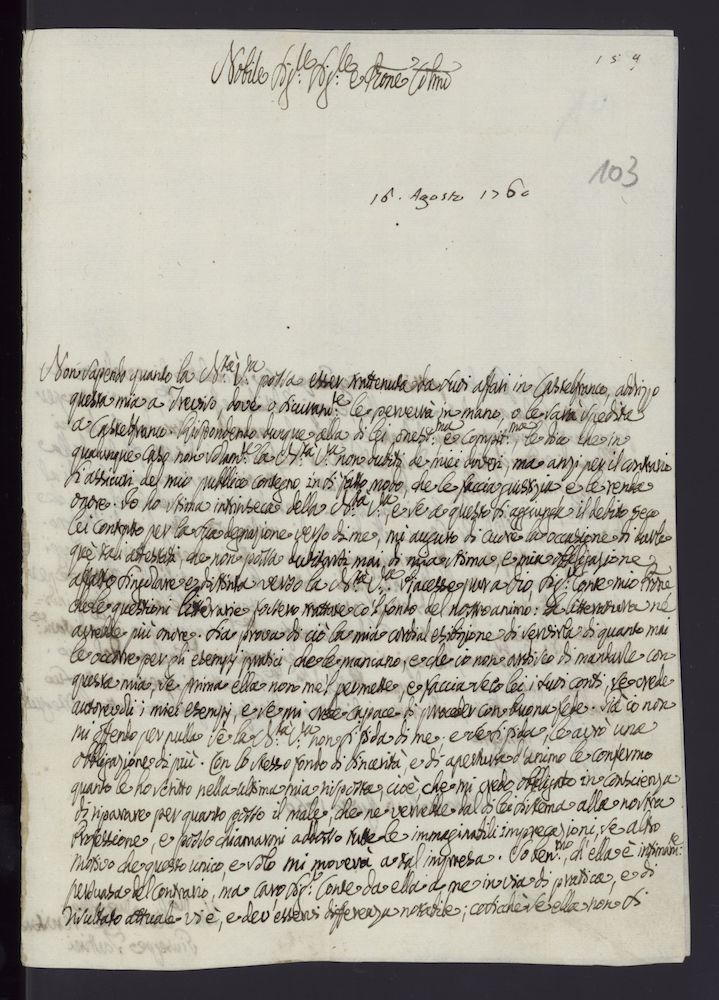 159
Nobile Sig.le Sig.le e Prone Colmo
103
16. Agosto 1760
Non sapendo quanto la N.tà V.ra possa esser trattenuta da suoi affari in Castelfranco, addrizzo
questa mia a Treviso, dove o sicuram.te le perverrà in mano, o le sarà spedita
a Castelfranco. Rispondendo dunque alla di lei onest.ma e compit.ma le dico che in
qualunque caso non solam.te la N.tà V.ra non dubiti de miei doveri, ma anzi per il contrario
si assicuri del mio pubblico contegno in sì fatto modo, che le faccia giustizia e le renda
onore. Io ho stima intrinseca della N.tà V.ra, e se a questo si aggiunga il debito seco
lei contratto per la sua degnazione verso di me, mi auguro di cuore la occasione di darle
tali attestati, che non possa dubitarsi mai di mia stima, e mia obbligazione
affatto singolare e distinta verso la N.tà V.ra. Piacesse pura a Dio, Sig.r Conte mio Prone
che le questioni letterarie fossero trattate col fondo del nostro animo: la letteratura ne
avrebbe più onore. Sia prova di ciò la mia cordial esibizione di servirla di quanto mai
le occorre per gli esempj pratici, che le mancano, e che io non ardisco di mandarle con
questa mia, se prima ella non me 'l permette, e faccia seco lei i suoi conti, se crede
autorevoli i miei esempj, e se mi crede capace di proceder con buona fede. Già io non
mi offendo per nulla se la N.tà V.ra non si fida di me. e se si fida, le avrò una
obbligazione di più. Con lo stesso fondo di sincerità e di apertura d'animo le confermo
quanto le ho scritto nella ultima mia risposta, cioè che mi credo obbligato in conscienza
di riparare per quanto posso il male, che ne verrebbe dal di lei sistema alla nostra
Professione, e posso chiamarmi addosso tutte le immaginabili imprecazioni, se altro
motivo che questo unico, e solo mi moverà a tal impresa. Io sen.tmo, ch'ella è intimam.te
persuasa del contrario, ma caro Sig.r Conte da ella a me in via di pratica, e di
risultato attuale vi è, e dev' esservi differenza notabile; cosicchè se ella non si